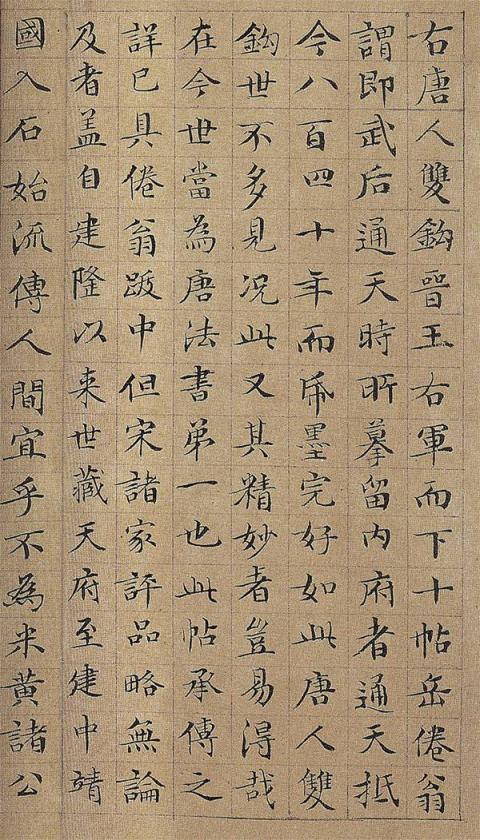 右唐人雙鈎晉王右軍而下十帖岳倦翁
謂即武后通天時所摹留内府者通天抵
今八百四十年而帋墨完好如此唐人雙
鈎世不多見况此又其精妙者豈易得哉
在今世當為唐法書弟一也此帖承傳之
詳已具倦翁跋中但宋諸家評品略無論
及者盖自建隆以来世藏天府至建中靖
國入石始流傳人間宜乎不為米黄諸公